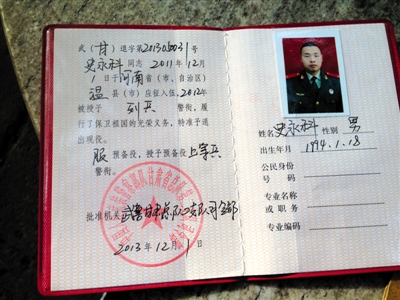 武（甘）退字第20130031号
史永科同志2011年12月
1日于河南省（市、自治区）
温县（市）应征入伍，2012年
被授予列兵警衔，履
行了保卫祖国的光荣义务，特准予退
出现役。
服预备役，授予预备役上等兵
警衔。
批准机关
2013年12月1日
姓名史永科性别男
出生年月1994.1.18
公民身份
号码
专业名称
或职务
专业编码